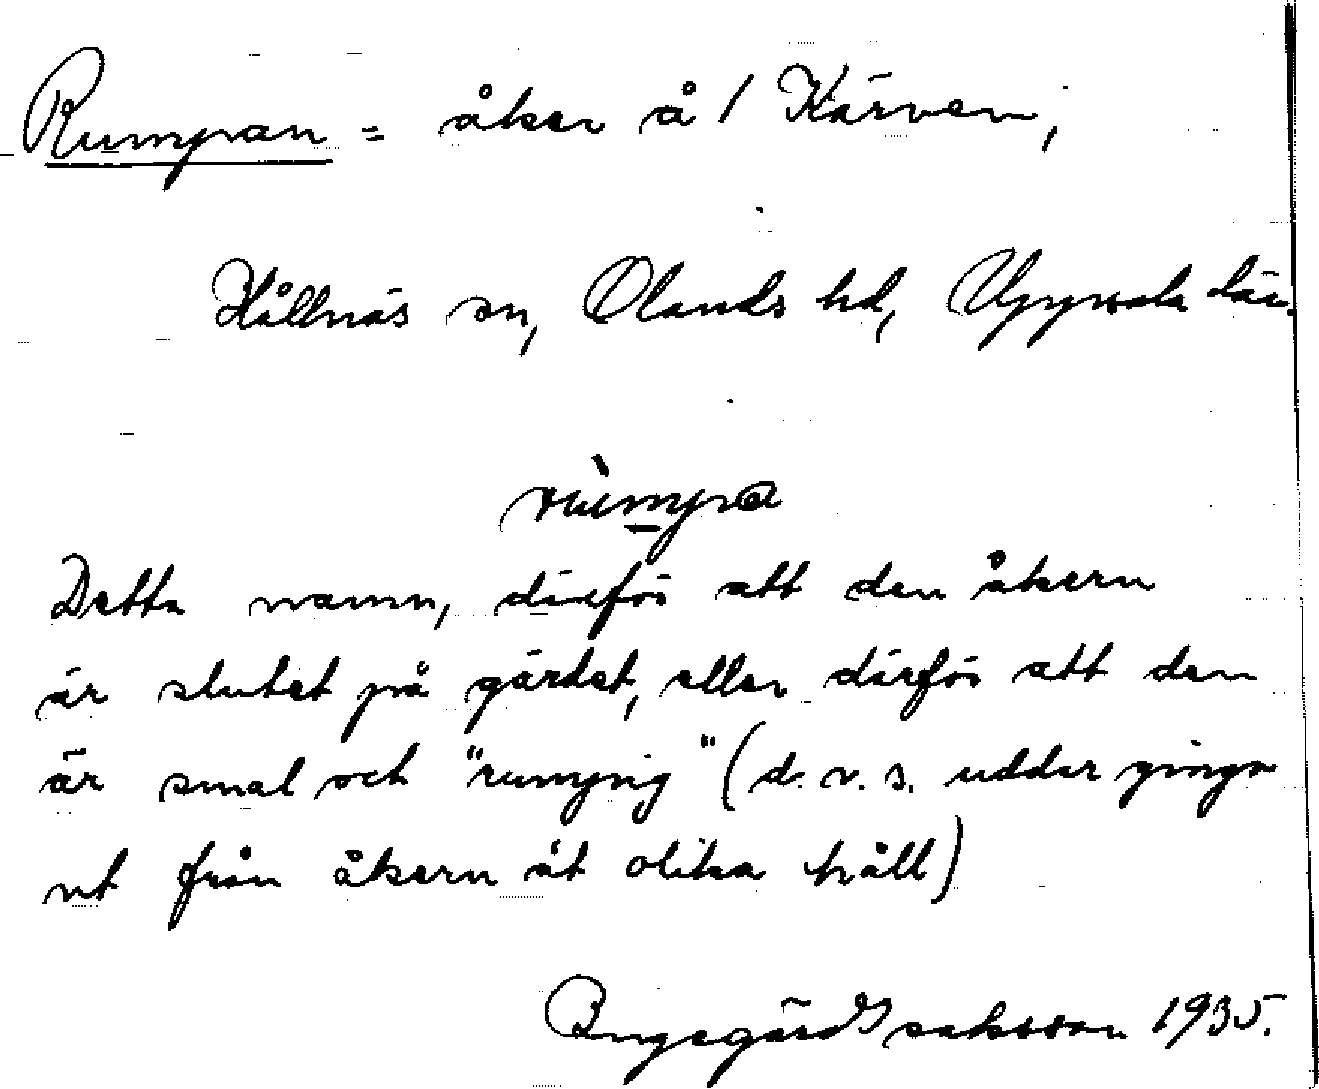 Rumpan = åker å 1 Kärven,
Hållnäs sn, Olands hd, Uppsala län.
rùmpa
Detta namn, därför att den åkern
är slutet på gärdet, eller därför att den
är smal och "rumpig" (d.v.s. uddar gingo
ut från åkern åt olika håll)
Ingegärd Isaksson 1935.